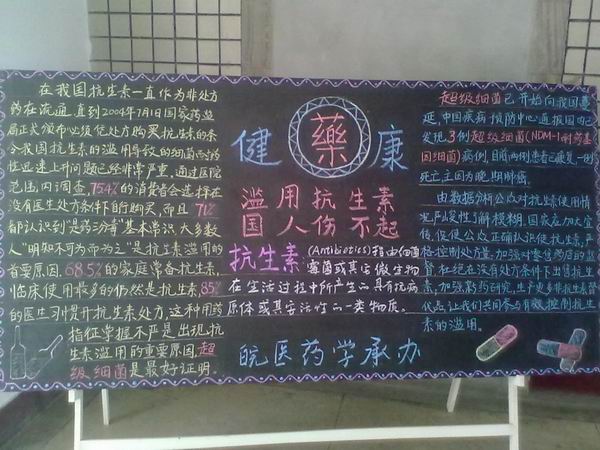 在我国抗生素一直作为非处方
药在流通,直到2004年7月1日国家药监
局正式颁布必须凭处方购买抗生素的条
令。我国抗生素的滥用导致的细菌耐药
性迅速上升问题已经非常严重,通过医院
范围内调查,75.4%的消费者会选择在
没有医生处方条件下自行购买,而且71%
都认识到"是药三分毒"基本常识。大多数
人"明知不可为而为之"是抗生素滥用的
首要原因。68.5%的家庭常备抗生素,
临床使用最多的仍然是抗生素,85%
的医生习惯开抗生素处方,这种用药
指征掌握不严是出现抗
生素滥用的重要原因,超
级细菌是最好证明。
健 藥 康
滥用抗生素
国人伤不起
抗生素:(Antibiotics)指由细菌
霉菌或其它微生物
在生活过程中所产生的具有抗病
原体或其它活性的一类物质。
皖医药学承办
超级细菌已开始向我国蔓
延,中国疾病预防中心通报国内已
发现3例超级细菌(NDM-1耐药基
因细菌)病例,目前两例患者已康复,一例
死亡主因为晚期肺癌。
由数据分析公众对抗生素使用情
况严重性了解模糊,国家应加大宣
传,促使公众正确认识使抗生素,严
格控制处方量,加强对零售药店的监
督,杜绝在没有处方条件下出售抗生
素,加强新药研究,生产更多非抗生素替
代品,让我们共同参与有效控制抗生
素的滥用。